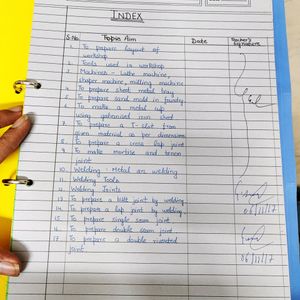 INDEX
S.No. Topic Aim Date Teacher's Signature
1. To prepare layout of
workshop
2. Tools used in workshop
3. Machines:- Lathe machine,
shaper machine, milling machine
4. To prepare sheet metal tray
5. To prepare sand mold in foundry
6. To make a metal cup
using galvanised iron sheet
7. To prepare a T-slot from
given material as per dimensions
8. To prepare a cross lap joint
9. To make mortise and tenon
joint
10. Welding - Metal arc welding
11. Welding Tools
12. Welding Joints
13. To prepare a butt joint by welding
14. To prepare a lap joint by welding
15. To prepare single seam joint
16. To prepare double seam joint
17. To prepare a double riveted
joint
06/11/17
06/11/17